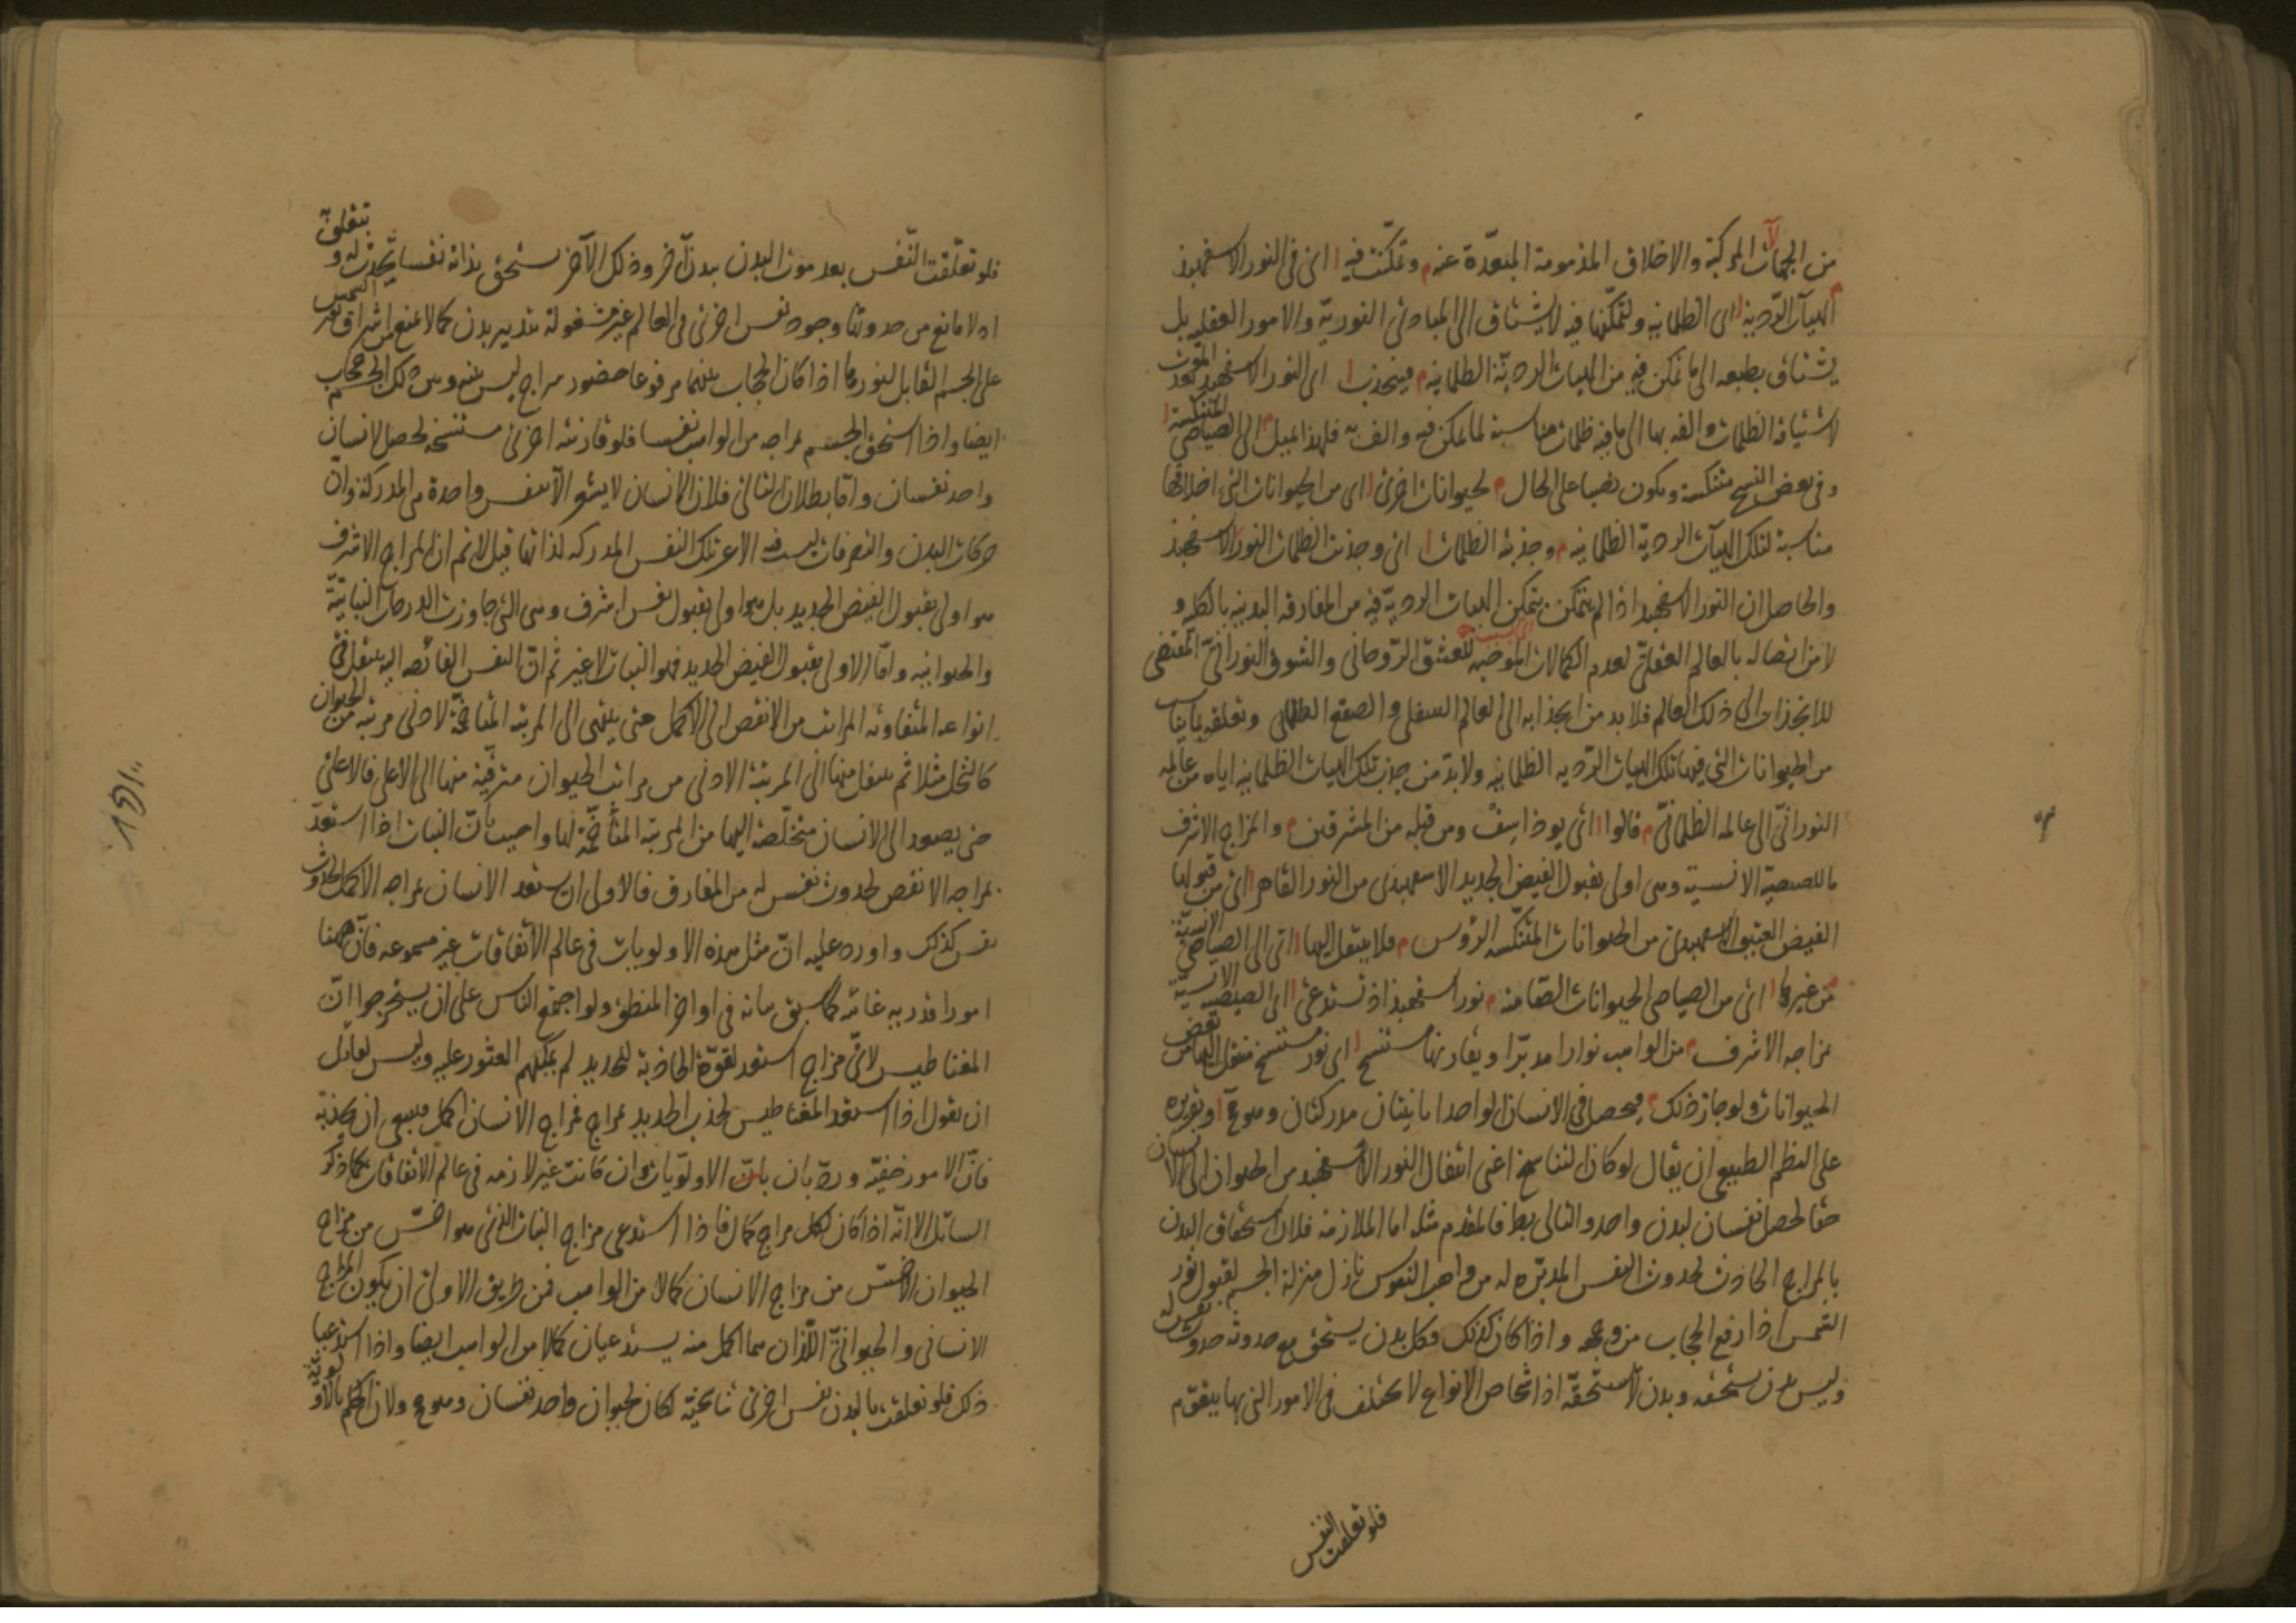 من الجهالات المركبة والاخلاق المذمومة المبعّدة عنه م وتمكّنت فيه ا اى فى النور الاسفهبذ
الهيآت الرّدية ا اى الظلمانية ولتمكّنها فيه لا يشتاق الى المبادئ النوريّة والامور العقلية بل
يشتاق بطبعه الى ما تمكن فيه من الهيات الرديّة الظلمانية م فينجذب ا اى النور الاسفهبد بعد الموت
لاشتياقه الظلمات والفه بها الى ما فيه ظلمات مناسبة لما تمكن فيه والف به فلهذا يميل م الى الصياصى المنتكسة ا
وفى بعض النسخ منتكسة ويكون نصبا على الحال م لحيوانات اخرى ا اى من الحيوانات التى اخلاقها
مناسبة لتلك الهيآت الردية الظلمانية م وجذبته الظلمات ا اى وجذبت الظلمات النور الاسفهبذ
والحاصل ان النور الاسفهبد اذا لم يتمكن بتمكن الهيات الرديّة فيه من المفارقة البدنية بالكلية و
لا من اتصاله بالعالم العقلىّ لعدم الكمالات الموجبه للعشق الرّوحانى والشوق النورانىّ المقتضى
للانجذاب الى ذلك العالم فلا بد من انجذابه الى العالم السفلى والصقع الظلمانى وتعلقه بما يناسب
من الحيوانات التى فيها تلك الهيات الرّديه الظلمانيه ولا بد من جذب تلك الهيات الظلمانيه اياه من عالمه
النورانىّ الى عالمه الظلمانىّ م قالوا ا اى يوذاسف ومن قبله من المشرقيين م والمزاج الاشرف
ما للصيصية الانسية وهى اولى بقبول الفيض الجديد الاسفهبدى من النور القاهر ا اى من قبولها
الفيض العتيق الاسفهبدى من الحيوانات المنتكّسه الرؤس م فلا ينتقل اليها ا اى الى الصياصى الانسيّة
م من غيرها ا اى من الصياصى الحيوانات الصّامتة م نور اسفهبذ اذ تستدعى ا اى الصيصية الانسيّة
بمزاجه الاشرف م من الواهب نورا مدبّرا ويقارنها مستنسخ ا اى نور مستنسخ منتقل اليها من بعض
الحيوانات ولو جاز ذلك م فيحصل فى الانسان الواحد انانيتان مدركتان وهو مح ا وتقريره
على النظم الطبيعى ان يقال لو كان التناسخ اعنى انتقال النور الاسفهبد من الحيوان الى الانسان
حقا لحصل نفسان لبدن واحد والتالى بط فالمقدم مثله اما الملازمة فلان استحقاق البدن
بالمزاج الحادث لحدوث النفس المدبّره له من واهب النفوس نازل منزلة الجسم لقبول نور
الشمس اذا رفع الحجاب من وجهه واذا كان كذلك فكل بدن يستحق مع حدوثه حدوث نفس له
وليس بدن يستحقه وبدن لا يستحقّه اذ اشخاص الانواع لا تختلف فى الامور التى بها يتقوّم
فلو تعلقت النفس
فلو تعلّقت النّفس بعد موت البدن ببدن آخر وذلك الآخر يستحق بذاته نفسا تحدث له و تتعلق
اذ لا مانع من حدوثها وجود نفس اخرى فى العالم غير مشغولة بتدبير بدن كما لا يمنع من اشراق نور الشمس
على الجسم القابل لنورها اذا كان الحجاب بينهما مرفوعا حضور سراج ليس بينه وبين ذلك الجسم حجاب
ايضا واذا استحق الجسم بمزاجه من الواهب نفسا فلو قارنته اخرى مستنسخه لحصل لانسان
واحد نفسان وامّا بطلان التالى فلان الانسان لا يشعر الا بنفس واحدة هى المدركة وانّ
حركات البدن والتصرفات ليست فيه الا عن تلك النفس المدركه لذاتها قيل لا نم ان المزاج الاشرف
هو اولى بقبول الفيض الجديد بل هو اولى بقبول نفس اشرف وهى التى جاوزت الدرجات النباتيّة
والحيوانيه وامّا الاولى بقبول الفيض الجديد فهو النبات لا غير ثم انّ النفس الفائضه اليه ينتقل فى
انواعه المتفاوته المراتب من الانقص الى الاكمل حتى ينتهى الى المرتبة المتاخّمة لادنى مرتبه من الحيوان
كالنخل مثلا ثم ينتقل منها الى المرتبة الادنى من مراتب الحيوان مترقّية منها الى الاعلى فالاعلى
حتى يصعد الى الانسان متخلّصة اليها من المرتبه المتاخّمة لها واجيب بانّ النبات اذا استعدّ
بمزاجه الانقص لحدوث نفس له من المفارق فالاولى ان يستعد الانسان بمزاجه الاكمل لحدوث
نفس كذلك واورد عليه انّ مثل هذه الاولويات فى عالم الاتفاقات غير مسموعه فانّ ههنا
امورا قدريه غائبه كما سبق بيانه فى اواخر المنطق ولو اجتمع الناس على ان يستخرجوا انّ
المغناطيس لاىّ مزاج استعد لقوّة الجاذبة للحديد لم يمكنهم العثور عليه وليس لقائل
ان يقول اذا استعد المغناطيس لجذب الحديد بمزاج فمزاج الانسان اكمل فينبغى ان يجذبه
فانّ الامور خفيّه وردّ بان الاولويّات وان كانت غير لازمه فى عالم الاتفاقات كما ذكر
السائل الا انّه اذا كان لكل مزاج كمال فاذا استدعى مزاج النبات الذى هو اخسّ من مزاج
الحيوان الاخسّ من مزاج الانسان كمالا من الواهب فمن طريق الاولى ان يكون المزاج
الانسانى والحيوانىّ اللّذان هما اكمل منه يستدعيان كمالا من الواهب ايضا واذا استدعيا
ذلك فلو تعلقت بالبدن نفس اخرى تناسخيّة لكان لحيوان واحد نفسان وهو مح ولان الحكم بالاولويّة